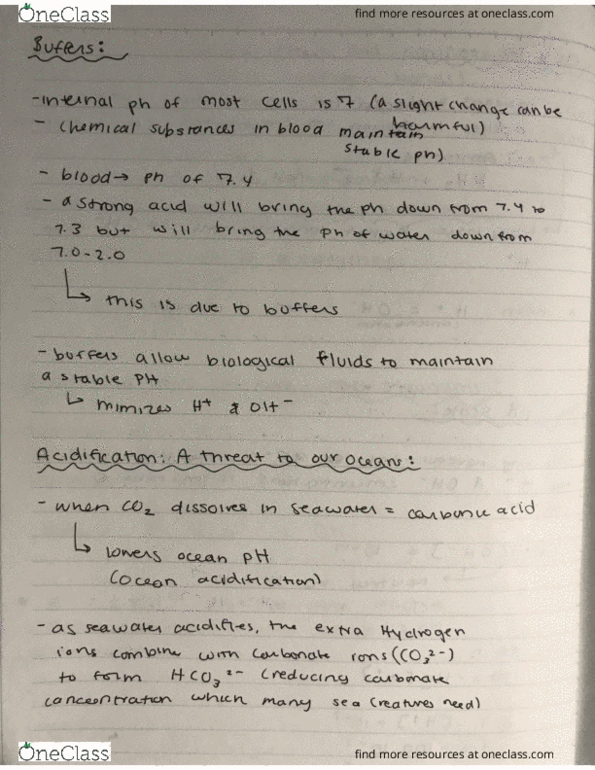 OneClass
find more resources at oneclass.com
Buffers:
-internal ph of most cells is 7 (a slight change can be
harmful)
- chemical substances in blood maintain
stable ph)
- blood→ ph of 7.4
- a strong acid will bring the ph down from 7.4 to
7.3 but will bring the ph of water down from
7.0-2.0
↳ this is due to buffers
- buffers allow biological fluids to maintain
a stable PH
↳ mimizes H+ & OH-
Acidification: A threat to our oceans:
- when CO2 dissolves in seawater = carbonic acid
↳ lowers ocean pH
(ocean acidification)
- as seawater acidifies, the extra Hydrogen
ions combine with carbonate ions (CO3²⁻)
to form HCO3²⁻ (reducing carbonate
concentration which many sea creatures need)
OneClass
find more resources at oneclass.com